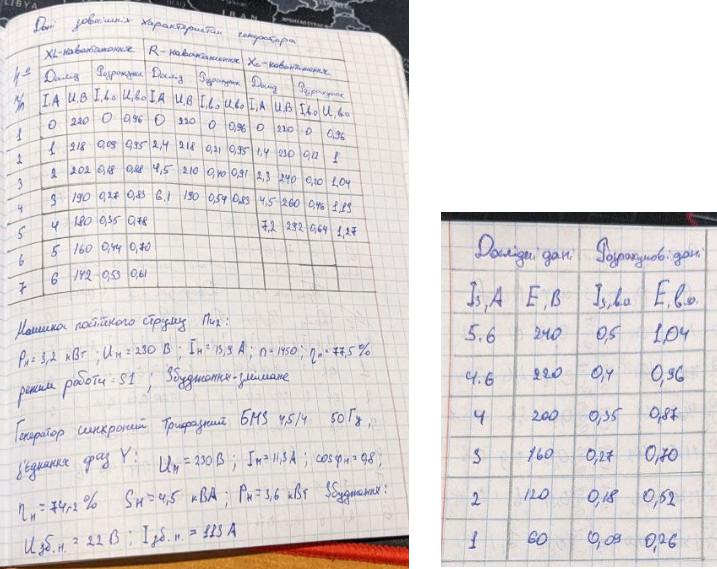 LIBYA
IRAN
Дані зовнішніх характеристик генератора
№ п/п XL-навантаження R-навантаження Xc-навантаження
Дослід Розрахунок Дослід Розрахунок Дослід Розрахунок
I,A U,B I,в.о U,в.о I,A U,B I,в.о U,в.о I,A U,B I,в.о U,в.о
1 0 220 0 0,96 0 220 0 0,96 0 220 0 0,96
2 1 218 0,09 0,95 2,4 218 0,21 0,95 1,4 230 0,12 1
3 2 202 0,18 0,88 4,5 210 0,40 0,91 2,3 240 0,20 1,04
4 3 190 0,27 0,83 6,1 190 0,54 0,83 4,5 260 0,40 1,13
5 4 180 0,35 0,78 7,2 292 0,64 1,27
6 5 160 0,44 0,70
7 6 142 0,53 0,61
Машина постійного струму П42:
Pн=3,2 кВт ; Uн=230 В ; Iн=13,9 А ; n=1450 ; ηн=77,5%
режим роботи-S1 ; Збудження-змішане
Генератор синхроний трифазний БМЗ 4,5/4 50 Гц,
з'єднання фаз Y: Uн=230В ; Iн=11,3А ; cosφн=0,8 ;
ηн=74,2% Sн=4,5 кВА ; Pн=3,6 кВт Збудження:
Uзб.н.=22 В ; Iзб.н.=11,3 А
Дослідні дані Розрахункові дані
Iз,А E,В Iз,в.о E,в.о.
5.6 240 0,5 1,04
4.6 220 0,4 0,96
4 200 0,35 0,87
3 160 0,27 0,70
2 120 0,18 0,52
1 60 0,09 0,26